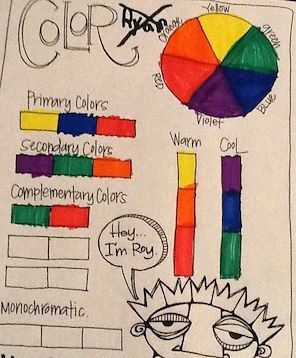 COLOR
Yellow
Orange
green
RED
BLUE
Violet
Primary Colors
Secondary Colors
Warm
Cool
Complementary Colors
Hey...
I'm Roy.
Monochromatic